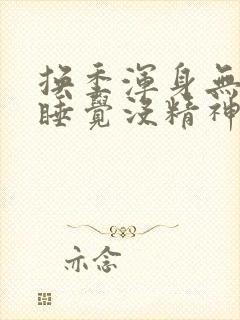 換季渾身無
睡覺沒精神
亦念